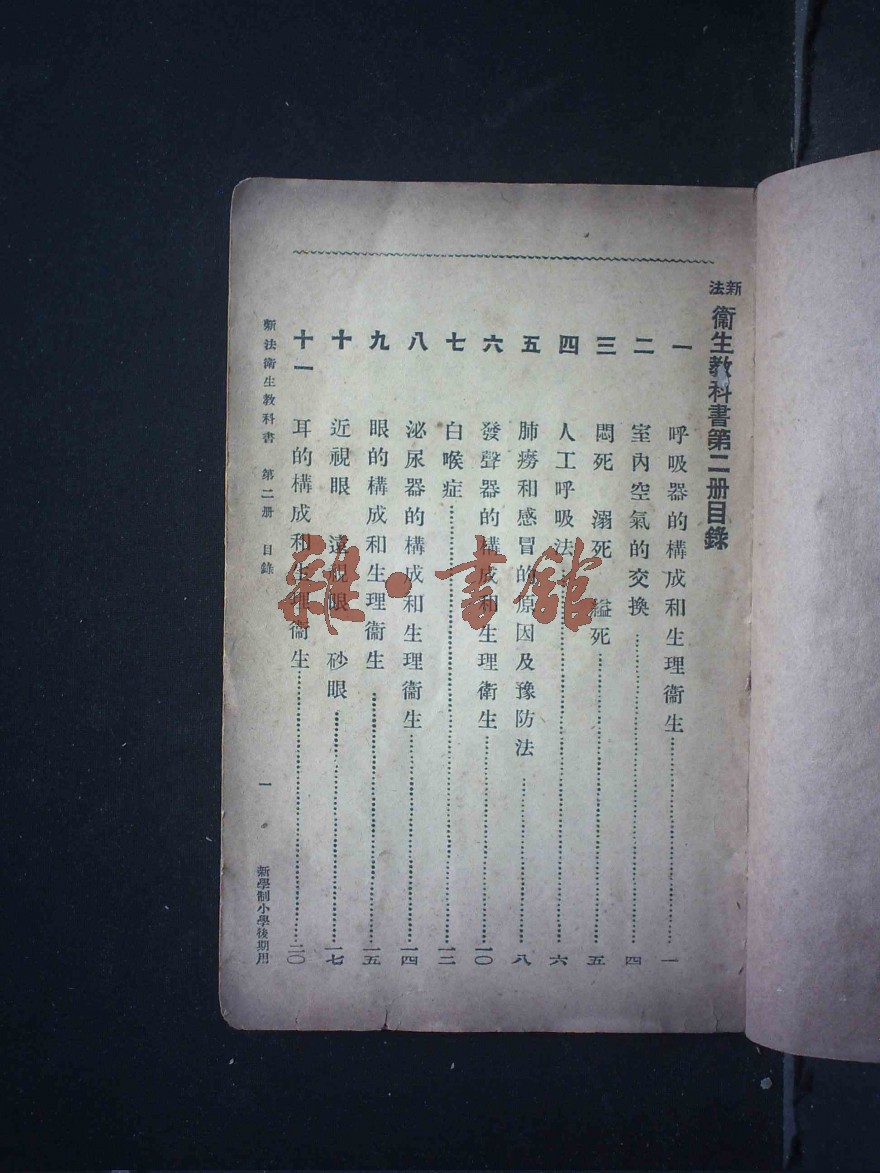 新法 衞生教科書第二册目錄
一 呼吸器的構成和生理衞生 一
二 室內空氣的交換 四
三 悶死 溺死 縊死 五
四 人工呼吸法 六
五 肺癆和感冒的原因及豫防法 八
六 發聲器的構成和生理衞生 一〇
七 白喉症 一二
八 泌尿器的構成和生理衞生 一四
九 眼的構成和生理衞生 一五
十 近視眼 遠視眼 砂眼 一七
十一 耳的構成和生理衞生 二〇
新法衞生教科書 第二册 目錄 一 新學制小學後期用
雜·書館